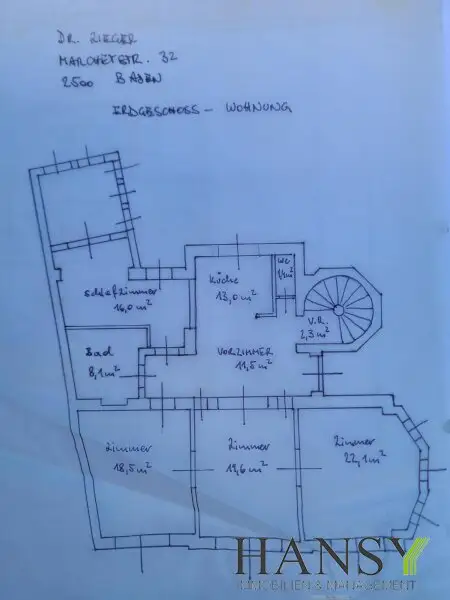 DR. RIEGER
MARCHETSTR. 32
2500 BADEN
ERDGESCHOSS - WOHNUNG
Schlafzimmer
16,0 m²
Küche
13,0 m²
WC
V.R.
2,3 m²
Bad
8,1 m²
VORZIMMER
11,5 m²
Zimmer
18,5 m²
Zimmer
19,6 m²
Zimmer
22,1 m²
HANSY
IMMOBILIEN & MANAGEMENT